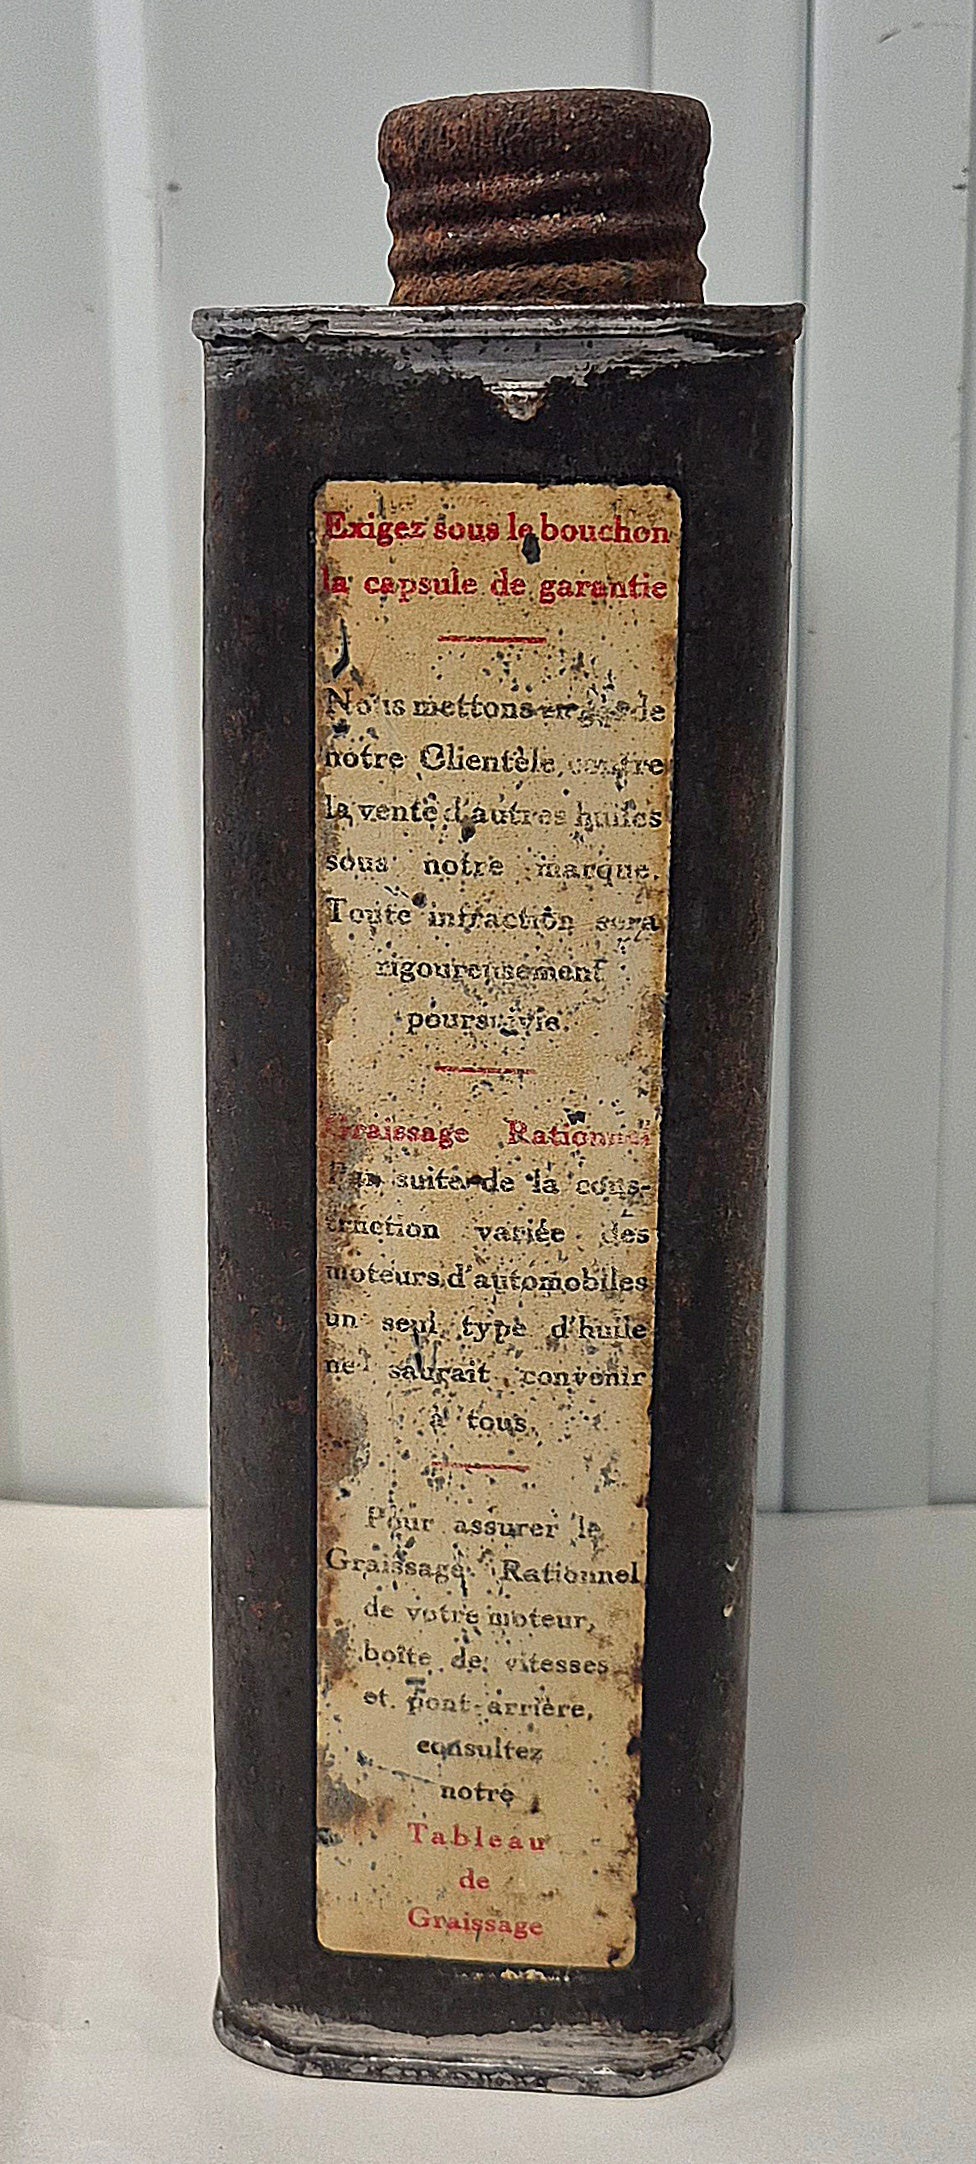 Exigez sous le bouchon
la capsule de garantie
Nous mettons en garde
notre Clientèle, contre
la vente d'autres huiles
sous notre marque.
Toute infraction sera
rigoureusement
poursuivie.
Graissage Rationnel
Par suite de la cons-
truction variée des
moteurs d'automobiles
un seul type d'huile
ne saurait convenir
à tous.
Pour assurer le
Graissage Rationnel
de votre moteur,
boîte de vitesses
et pont-arrière,
consultez
notre
Tableau
de
Graissage